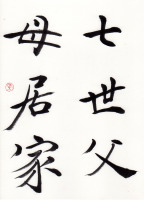 七世父
母居家